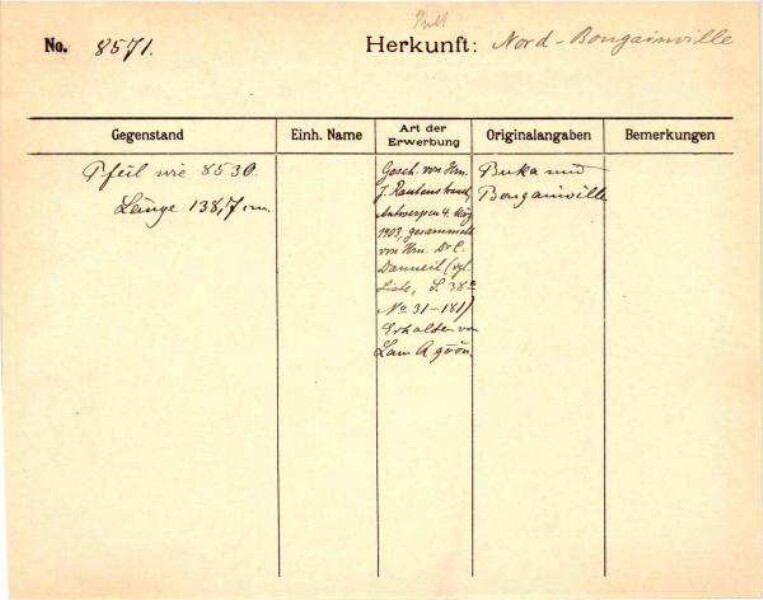 No. 8571. Herkunft: Nord-Bougainville
Gegenstand Einh. Name Art der Erwerbung Originalangaben Bemerkungen
Pfeil wie 8530.
Länge 138,7 cm.
Gesch. von Hrn.
J. Rautenstrauch,
Antwerpen 4. März
1903, gesammelt
von Hrn. Dr C.
Danneil (vgl.
Liste, S. 38a
No 31-181)
Erhalten von
Lam A
Buka und
Bougainville